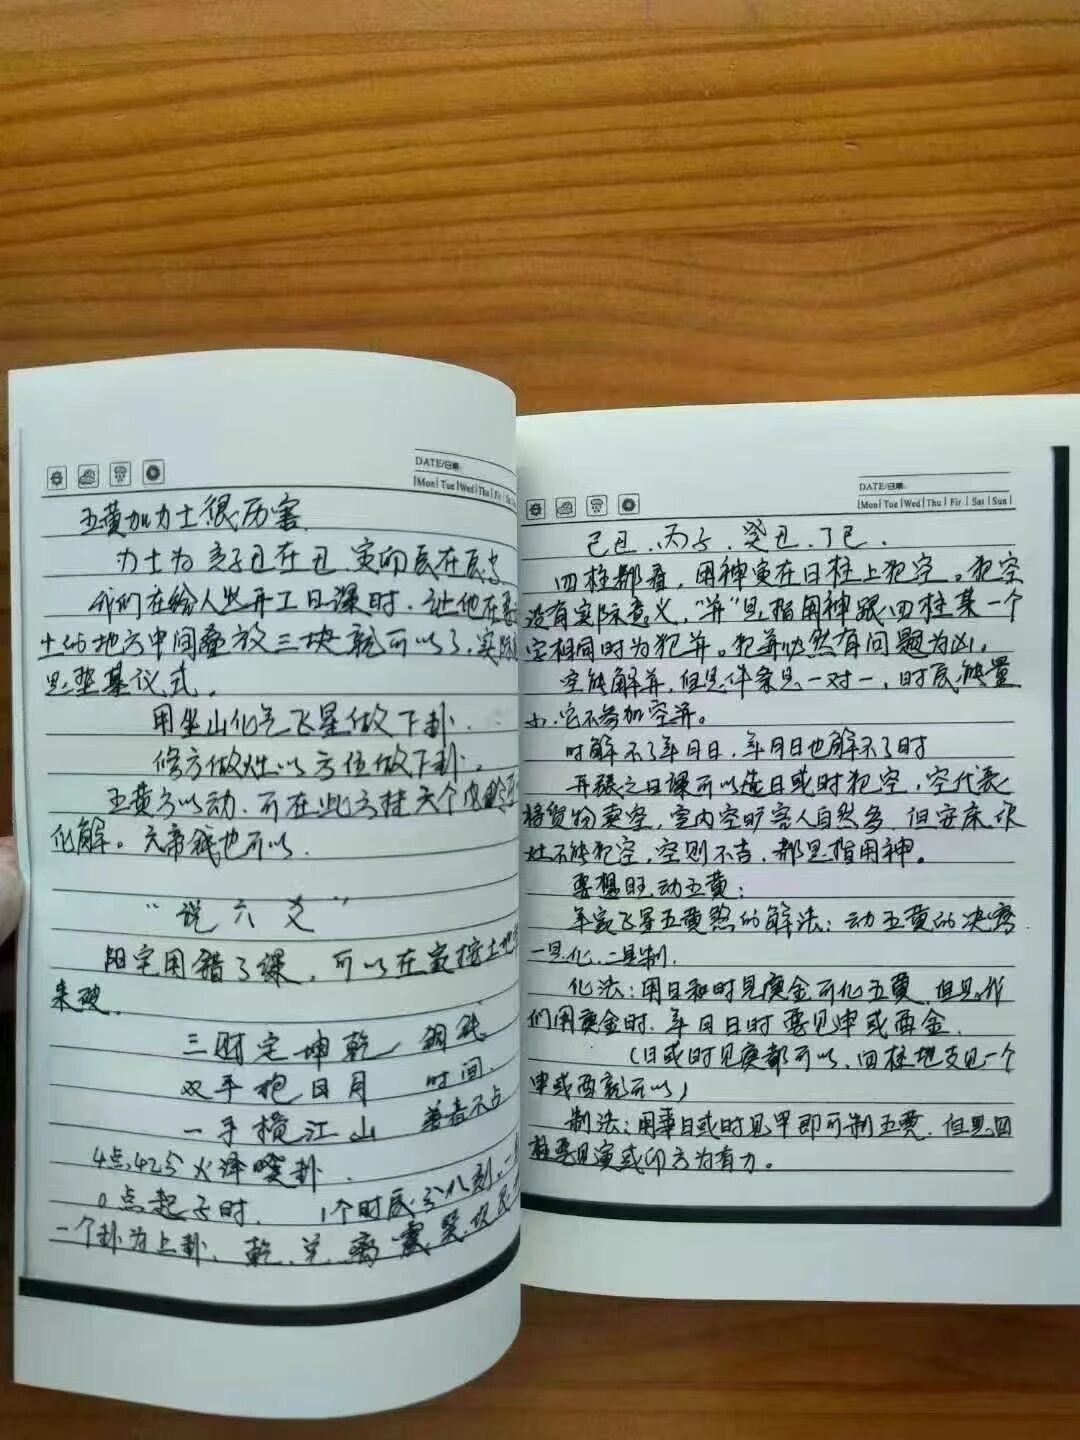 DATE/日期
Mon Tue Wed Thu Fri
五黄加力士很厉害.
力士为亥子丑在丑、寅卯辰在辰
我们在给人业开工日课时、让他在
土的地方中间叠放三块就可以了,实际
是垫基仪式。
用坐山化气飞星做下卦.
修方做灶以方位做下卦。
五黄方以动,可在此方挂六个
化解。六帝钱也可以.
"说六爻"
阳宅用错了课,可以在家挖土
来破.
三财定坤乾 铜钱
双手抱日月 时间.
一手横江山
4点42分火泽睽卦.
0点起子时、1个时辰分八刻.一
一个卦为上卦、乾、兑、离、震、巽、坎、艮
DATE/日期
Mon Tue Wed Thu Fir Sat Sun
己丑、丙子、癸丑、丁巳.
四柱都看,用神寅在日柱上犯空。犯空
没有实际意义,"并"是指用神跟四柱某一个
字相同时为犯并。犯并必然有问题为凶。
空能解并,但是条件是一对一,时辰能量
小、它不参加空并。
时解不了年月日,年月日也解不了时
开张之日课可以选日或时犯空,空代表
将货物卖空,室内空旷客人自然多.但安床,
灶不能犯空,空则不吉、都是指用神。
要想旺,动五黄:
年家飞星五黄煞的解法:动五黄的决窍
一是化、二是制.
化法:用日和时见庚金可化五黄,但是
们用庚金时、年月日时要见申或酉金.
(日或时见庚都可以、四柱地支见一个
申或酉就可以)
制法:用事日或时见甲即可制五黄.但是四
柱要见寅或卯方为有力。